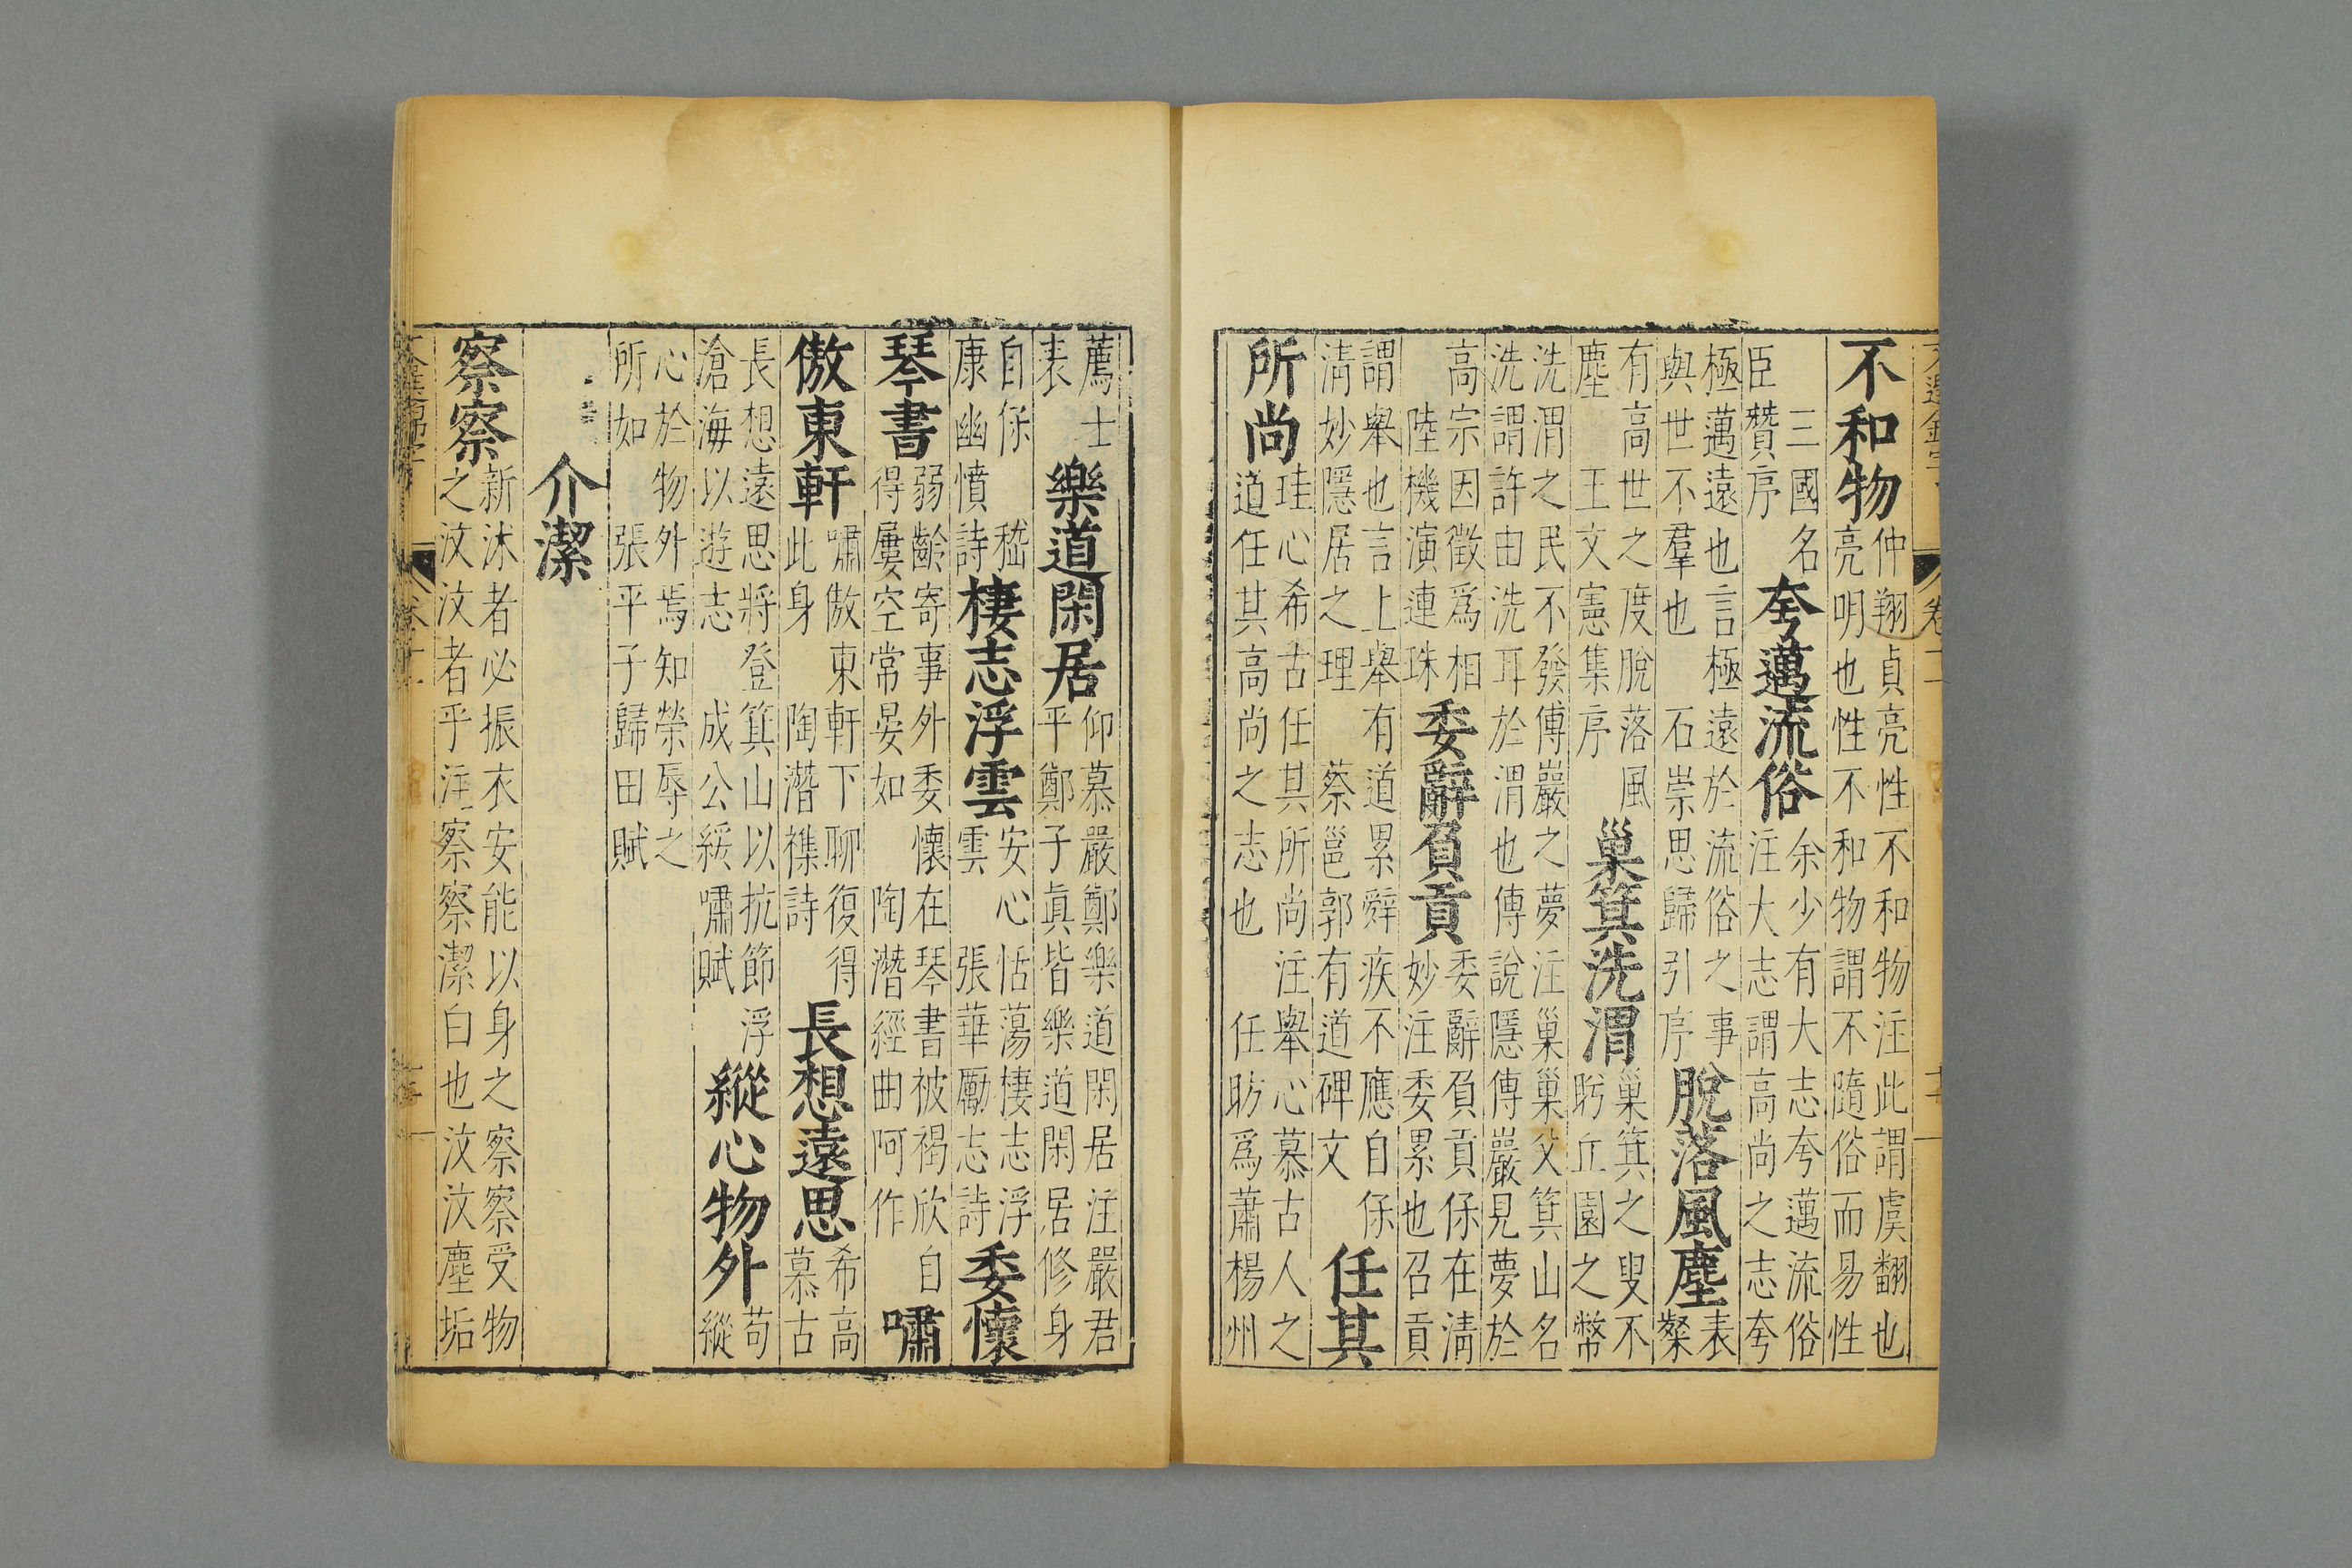 不和物仲翔貞亮性不和物注此謂虞翻也
亮明也性不和物謂不隨俗而易性
三國名
臣贊序
夸邁流俗
余少有大志夸邁流俗
注大志謂高尚之志夸
極邁遠也言極遠於流俗之事
與世不羣也 石崇思歸引序
脫落風塵
表
粲
有高世之度脫落風
塵 王文憲集序
巢箕洗渭
巢箕之叟不
眄丘園之幣
洗渭之民不發傅巖之夢注巢巢父箕山名
洗謂許由洗耳於渭也傅說隱傅巖見夢於
高宗因徵爲相
陸機演連珠
委辭負貢
委辭負貢保在淸
妙注委累也召貢
謂舉也言上舉有道累辤疾不應自保
淸妙隱居之理 蔡邕郭有道碑文
任其
所尚
珪心希古任其所尚注舉心慕古人之
道任其高尚之志也 任昉爲蕭楊州
薦士
表
樂道閑居
仰慕嚴鄭樂道閑居注嚴君
平鄭子眞皆樂道閑居修身
自保 嵇
康幽憤詩
棲志浮雲
安心恬蕩棲志浮
雲 張華勵志詩
委懷
琴書
弱齡寄事外委懷在琴書被褐欣自
得屢空常晏如 陶潛經曲阿作
嘯
傲東軒
嘯傲東軒下聊復得
此身 陶潛襍詩
長想遠思
希高
慕古
長想遠思將登箕山以抗節浮
滄海以遊志 成公綏嘯賦
縱心物外
苟
縱
心於物外焉知榮辱之
所如 張平子歸田賦
介潔
察察
新沐者必振衣安能以身之察察受物
之汶汶者乎注察察潔白也汶汶塵垢